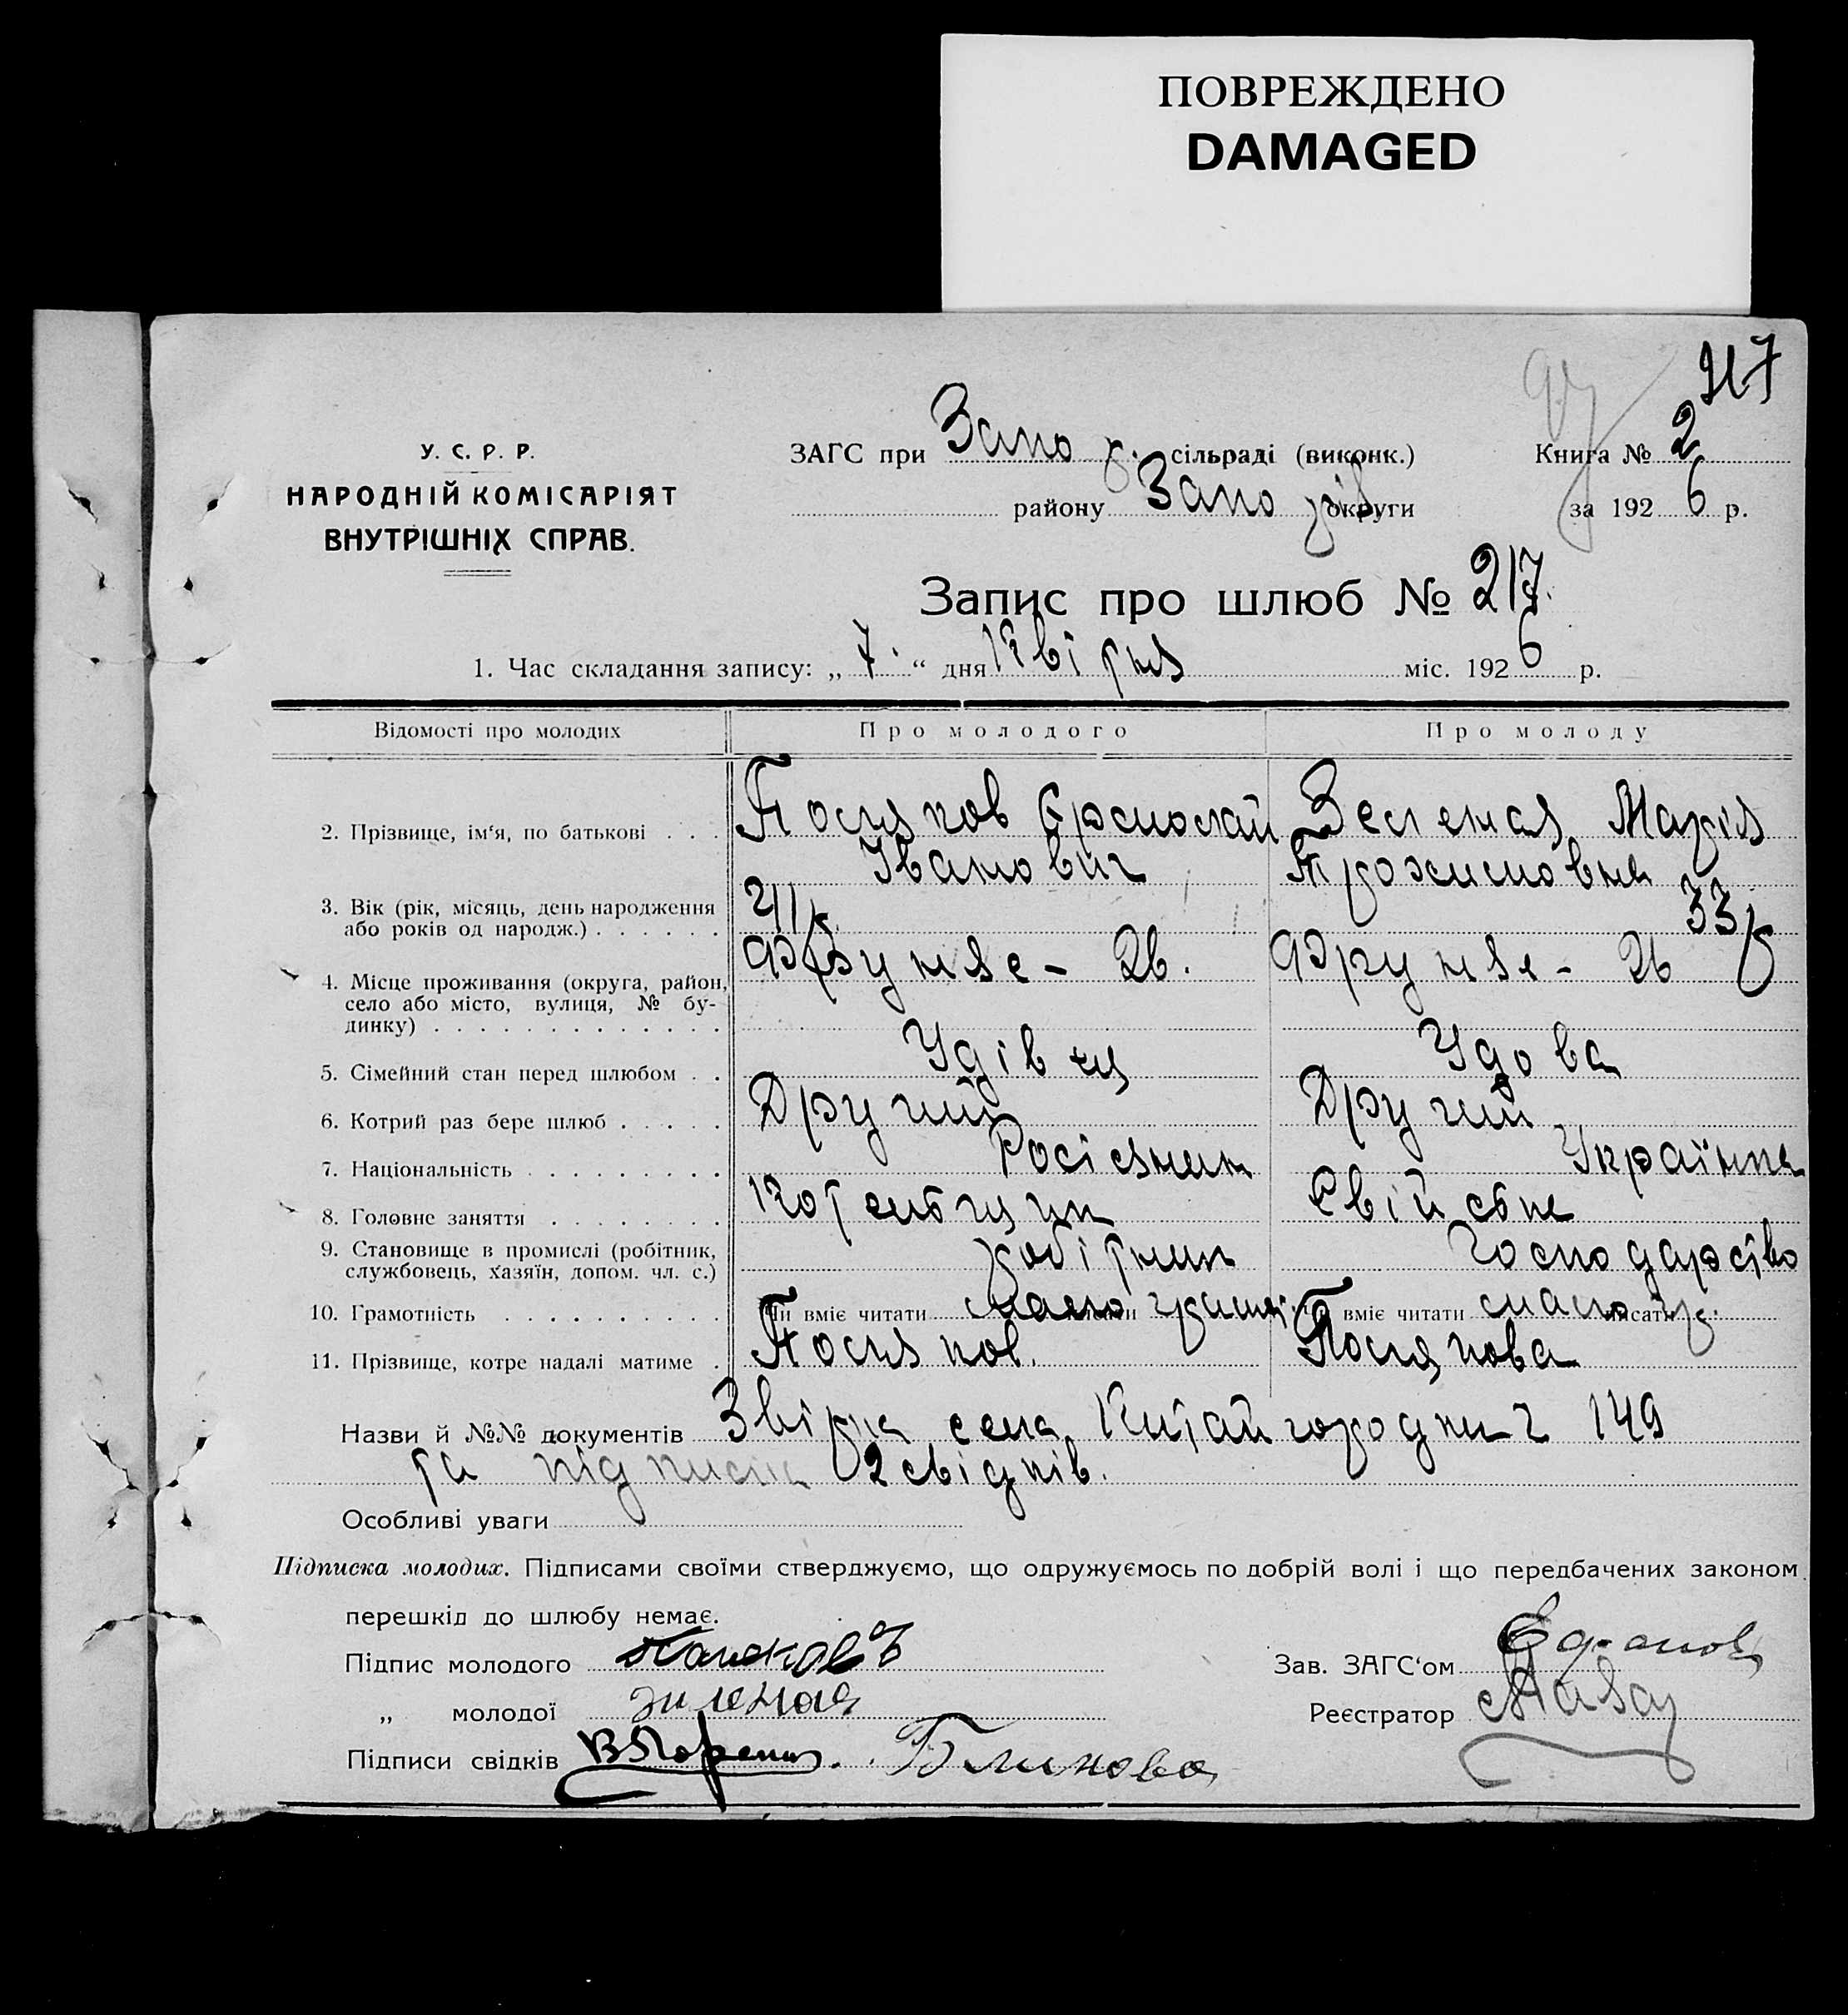 ПОВРЕЖДЕНО
DAMAGED
217
У. С. Р. Р.
НАРОДНІЙ КОМІСАРІЯТ
ВНУТРІШНІХ СПРАВ.
ЗАГС при Запо сільраді (виконк.)
району Запо округи
Книга № 2
за 1926 р.
Запис про шлюб № 217.
1. Час складання запису: „ 7. “ дня Квітня міс. 1926 р.
Відомості про молодих Про молодого Про молоду
2. Прізвище, ім‘я, по батькові . . . Поляков Іванович Зеленая Марія
3. Вік (рік, місяць, день народження
або років од народж.) . . . . . . 33
4. Місце проживання (округа, район, Фрунзе - 26. Фрунзе - 26
село або місто, вулиця, № бу-
динку) . . . . . . . . . . . . .
5. Сімейний стан перед шлюбом . . Удівец Удова
6. Котрий раз бере шлюб . . . . . Другий Другий
7. Національність . . . . . . . . . Росіянин Українка
8. Головне заняття . . . . . . . . Котельщик Свійське
9. Становище в промислі (робітник, робітник Господарство
службовець, хазяїн, допом. чл. с.)
10. Грамотність . . . . . . . . . . Чи вміє читати мало вміє читати мало
11. Прізвище, котре надалі матиме . Поляков. Полякова
Назви й №№ документів Звірка села Китайгородки 149
та підписка 2 свідків.
Особливі уваги
Підписка молодих. Підписами своїми стверджуємо, що одружуємось по добрій волі і що передбачених законом
перешкід до шлюбу немає.
Підпис молодого Поляковъ Зав. ЗАГС‘ом
„ молодої зиленая Реєстратор
Підписи свідків Блинова